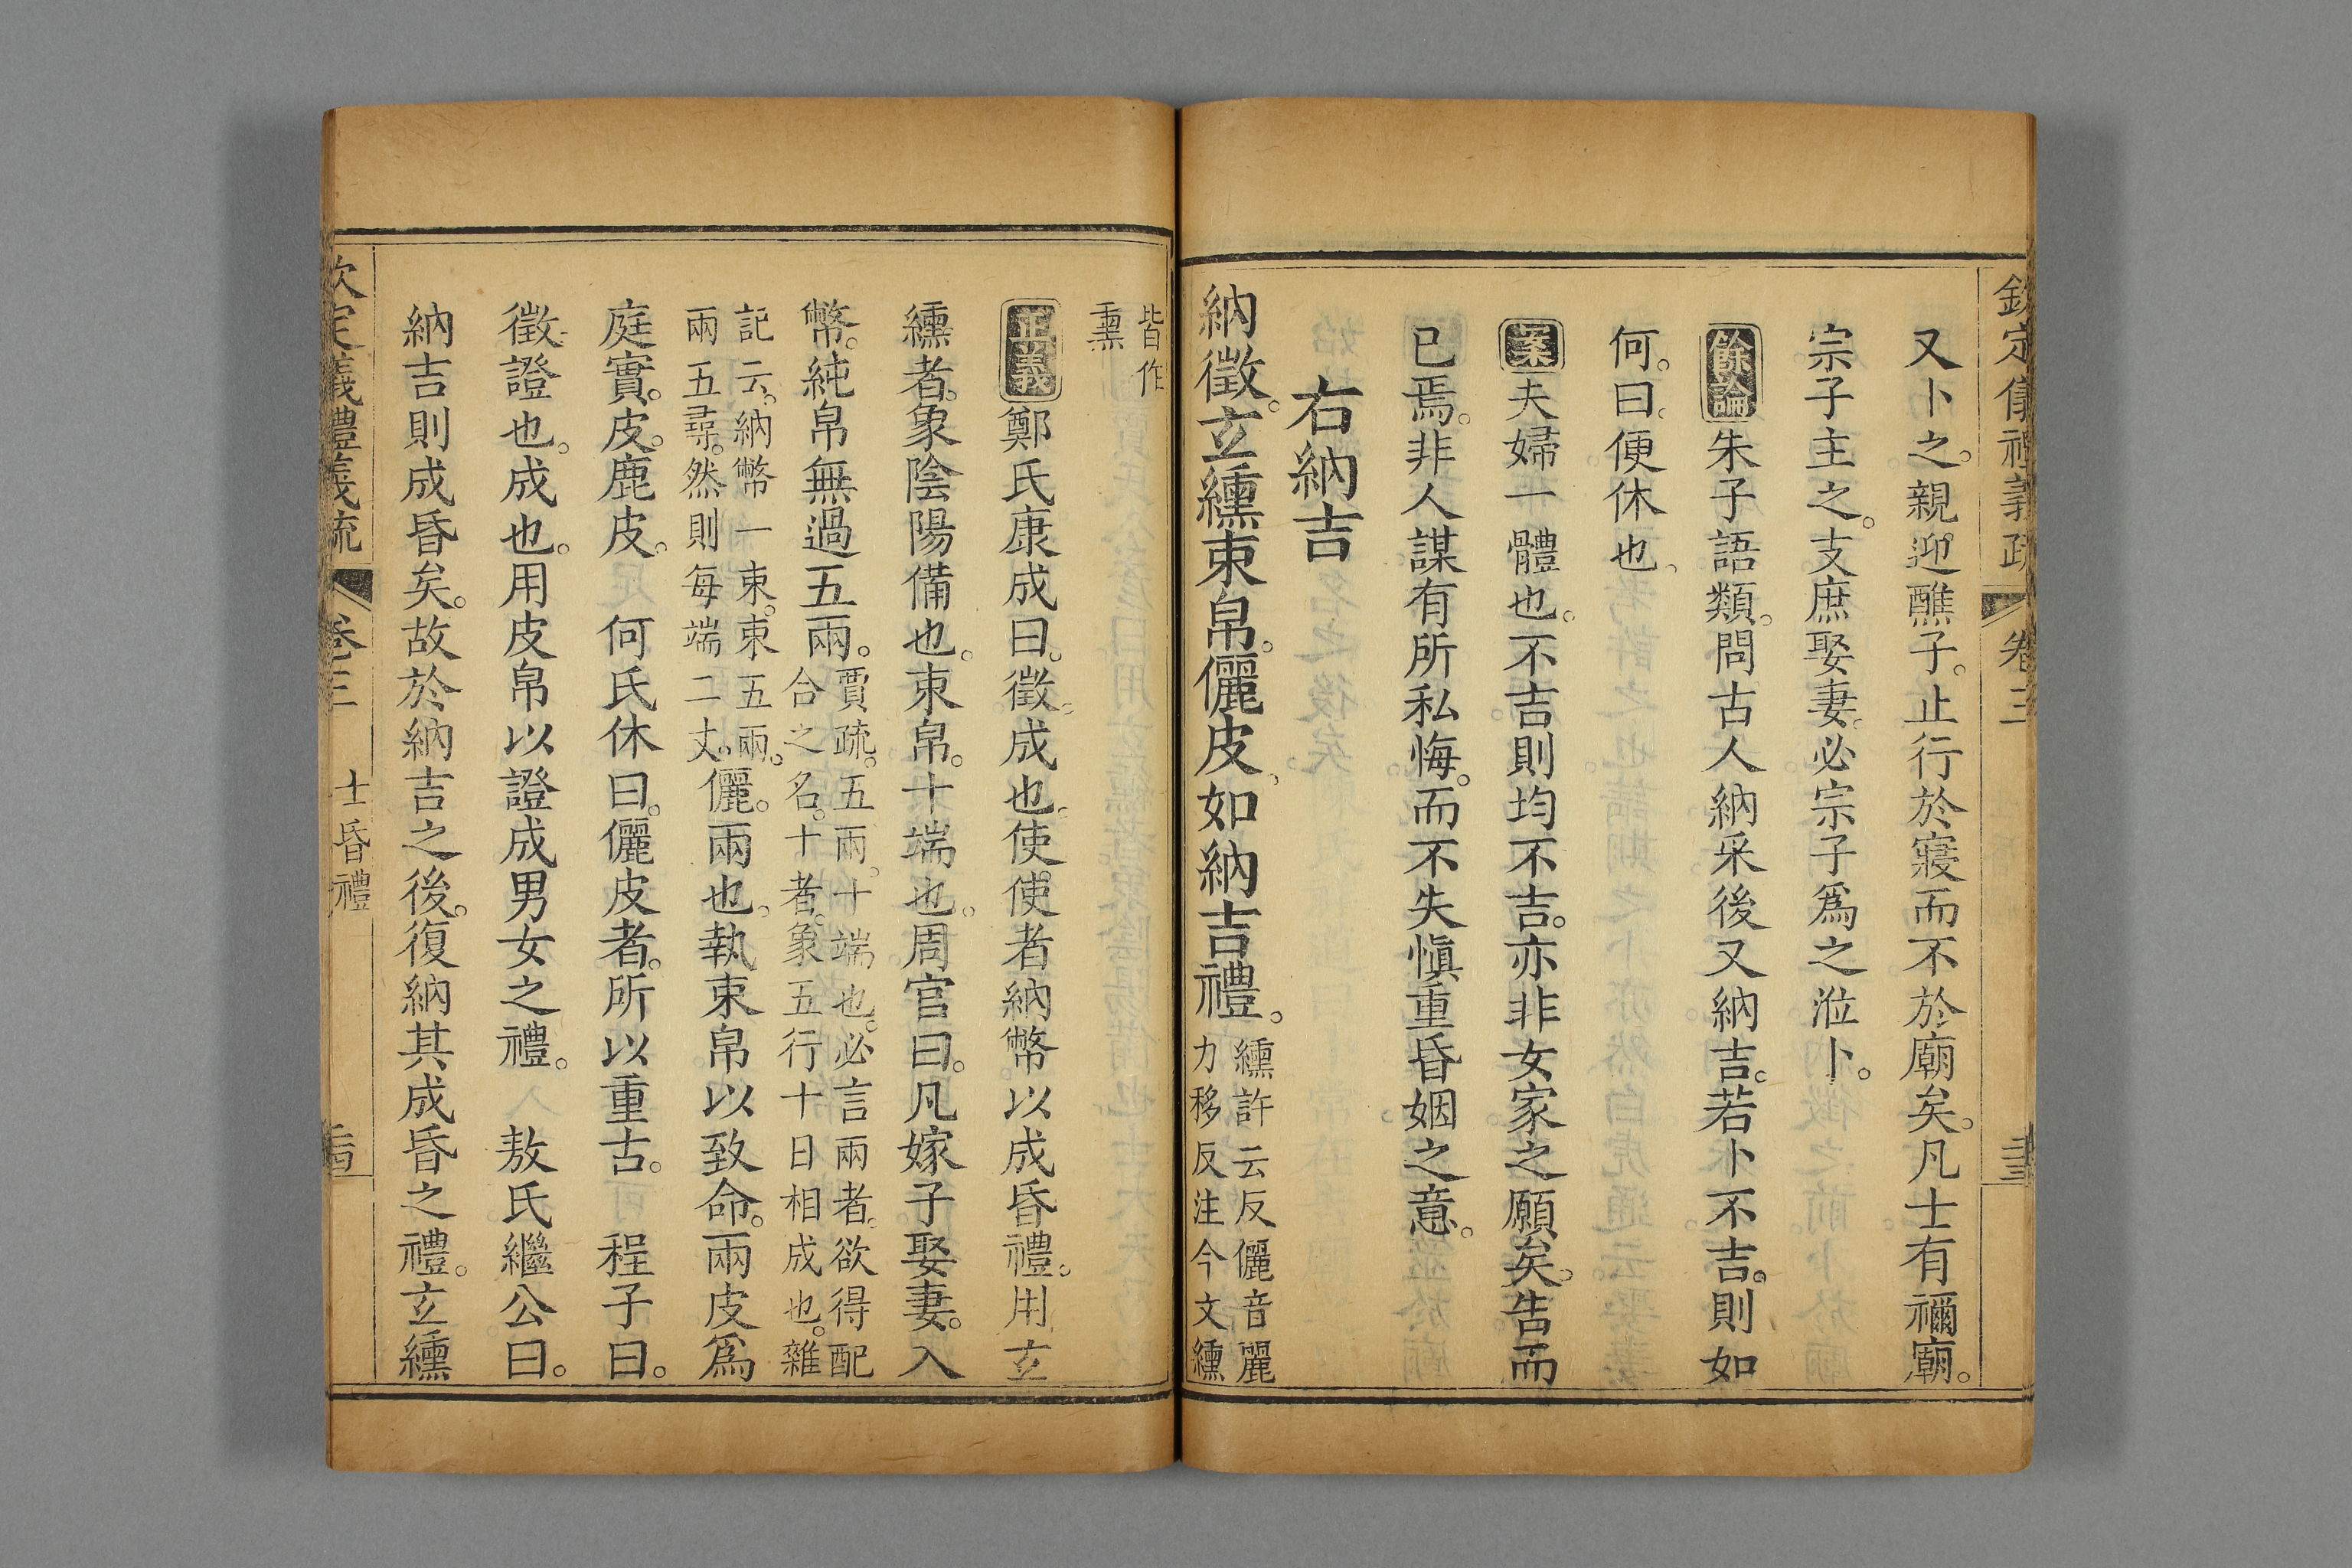 欽定儀禮義疏 卷三
又卜之。親迎醮子。止行於寢而不於廟矣。凡士有禰廟。
宗子主之。支庶娶妻。必宗子爲之涖卜。
餘論 朱子語類。問古人納采後又納吉。若卜不吉。則如
何。曰。便休也。
案 夫婦一體也。不吉則均不吉。亦非女家之願矣。告而
已焉。非人謀有所私悔。而不失愼重昏姻之意。
右納吉
納徵。玄纁束帛。儷皮。如納吉禮。
纁許云反儷音麗
力移反注今文纁
皆作
熏
正義 鄭氏康成曰。徵。成也。使使者納幣以成昏禮。用玄
纁者。象陰陽備也。束帛。十端也。周官曰。凡嫁子娶妻。入
幣。純帛無過五兩。
賈疏。五兩。十端也。必言兩者。欲得配
合之名。十者。象五行十日相成也。雜
記云。納幣一束。束五兩。
兩五尋。然則每端二丈。
儷。兩也。執束帛以致命。兩皮爲
庭實。皮。鹿皮。 何氏休曰。儷皮者。所以重古。 程子曰。
徵。證也。成也。用皮帛以證成男女之禮。 敖氏繼公曰。
納吉則成昏矣。故於納吉之後。復納其成昏之禮。玄纁
欽定儀禮義疏 卷三 士昏禮